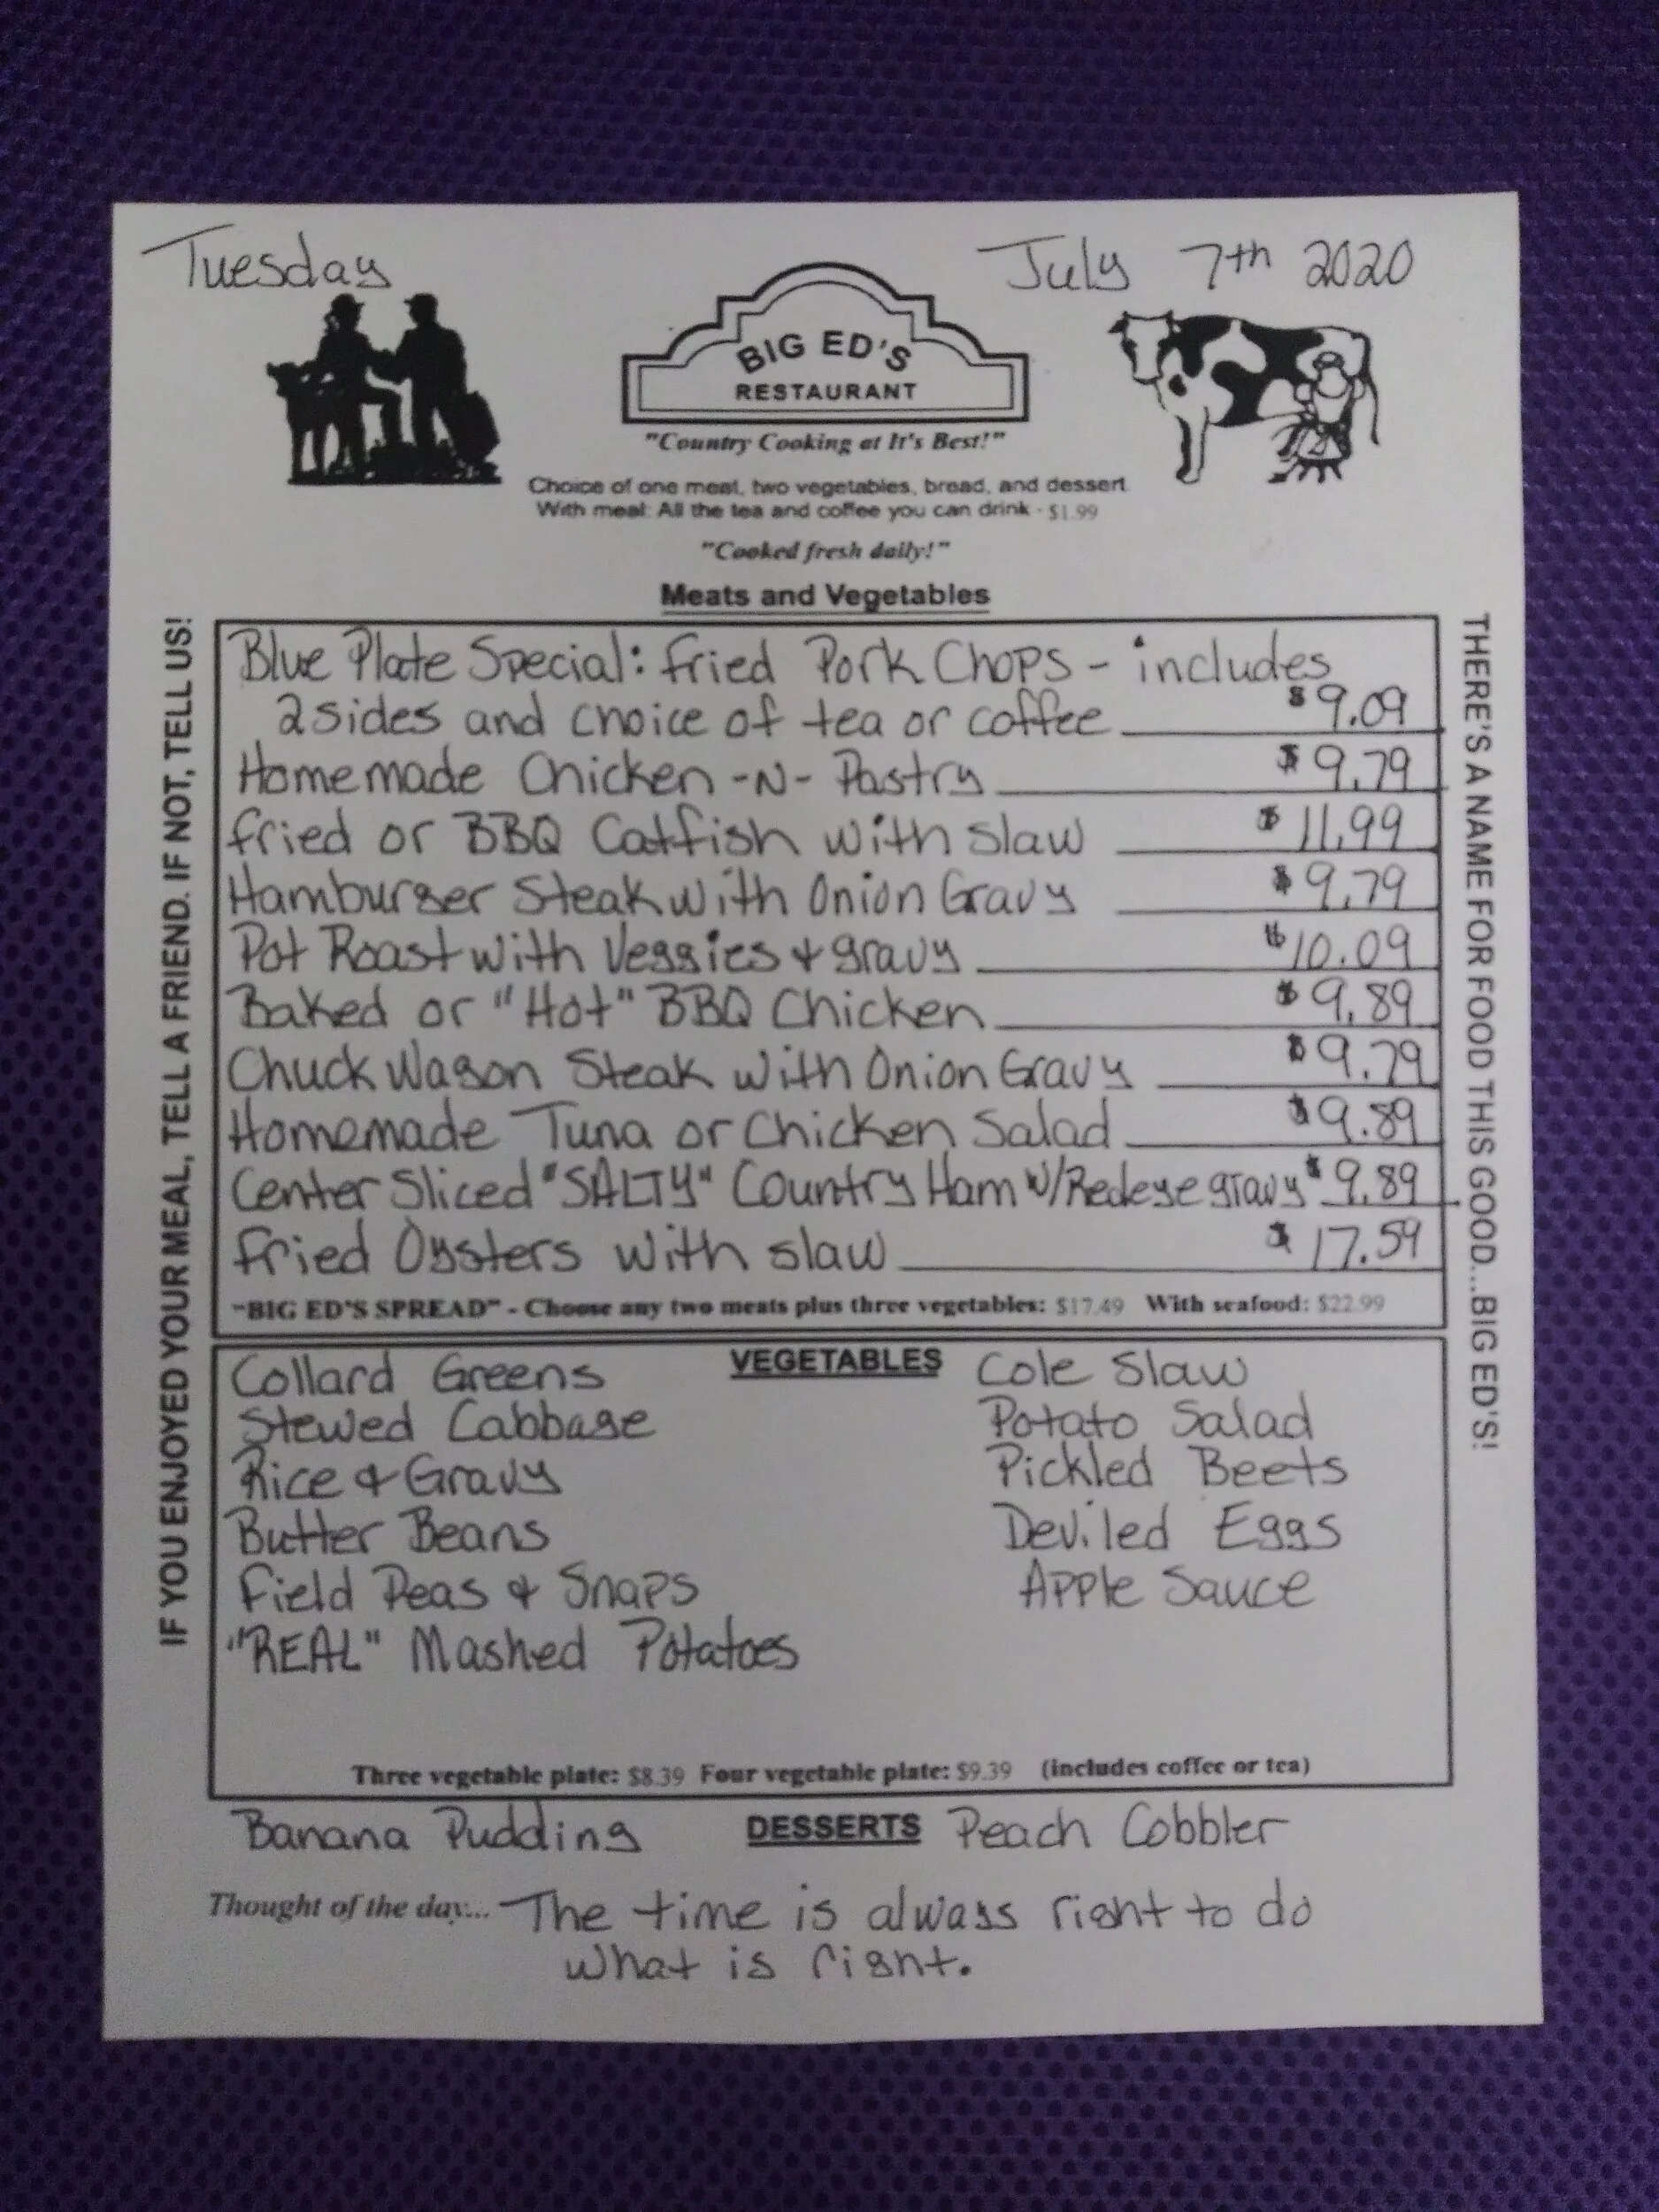 Tuesday
July 7th 2020
BIG ED'S
RESTAURANT
"Country Cooking at It's Best!"
Choice of one meat, two vegetables, bread, and dessert
With meal: All the tea and coffee you can drink - $1.99
"Cooked fresh daily!"
Meats and Vegetables
IF YOU ENJOYED YOUR MEAL, TELL A FRIEND. IF NOT, TELL US!
Blue Plate Special: Fried Pork Chops - includes
2 sides and choice of tea or coffee $9.09
Homemade Chicken -N- Pastry $9.79
Fried or BBQ Catfish with slaw $11.99
Hamburger Steak with Onion Gravy $9.79
Pot Roast with Veggies & gravy $10.09
Baked or "Hot" BBQ Chicken $9.89
Chuck Wagon Steak with Onion Gravy $9.79
Homemade Tuna or Chicken Salad $9.89
Center Sliced "SALTY" Country Ham w/Redeye gravy $9.89
Fried Oysters with slaw $17.59
"BIG ED'S SPREAD" - Choose any two meats plus three vegetables: $17.49 With seafood: $22.99
THERE'S A NAME FOR FOOD THIS GOOD...BIG ED'S!
VEGETABLES
Collard Greens
Stewed Cabbage
Rice & Gravy
Butter Beans
Field Peas & Snaps
"REAL" Mashed Potatoes
Cole Slaw
Potato Salad
Pickled Beets
Deviled Eggs
Apple Sauce
Three vegetable plate: $8.39 Four vegetable plate: $9.39 (includes coffee or tea)
Banana Pudding DESSERTS Peach Cobbler
Thought of the day... The time is always right to do
what is right.